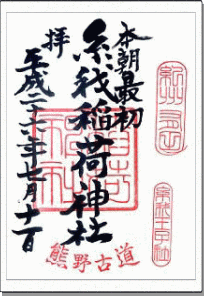 本朝最初
糸我稲荷神社
拝
平成二十六年七月十
熊野古道